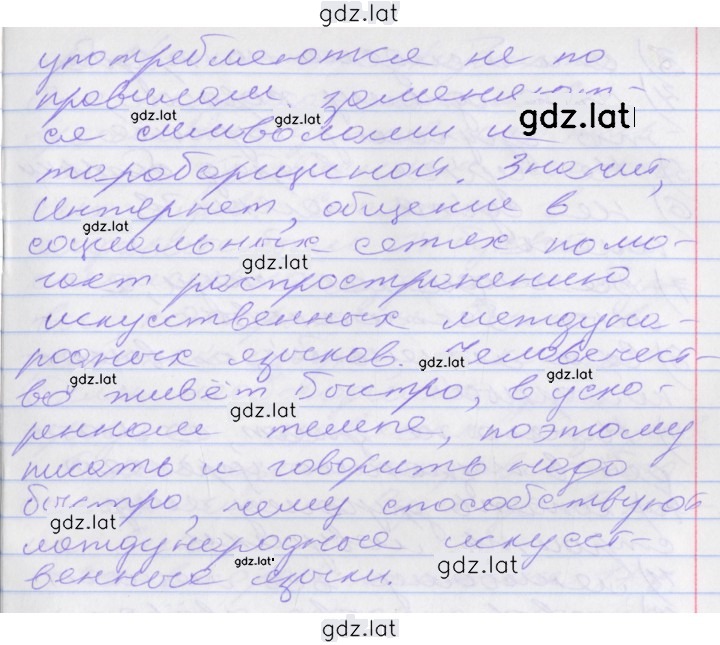 gdz.lat
употребляются не по
правилам, заменяют-
ся символами и
тарабарщиной. Значит,
Интернет, общение в
социальных сетях помо-
гает распространению
искусственных междуна-
родных языков. Человечест-
во живёт быстро, в уско-
ренном темпе, поэтому
писать и говорить надо
быстро, чему способствуют
международные искусст-
венные языки.
gdz.lat
gdz.lat
gdz.lat
gdz.lat
gdz.lat
gdz.lat
gdz.lat
gdz.lat
gdz.lat
gdz.lat
gdz.lat
gdz.lat
gdz.lat